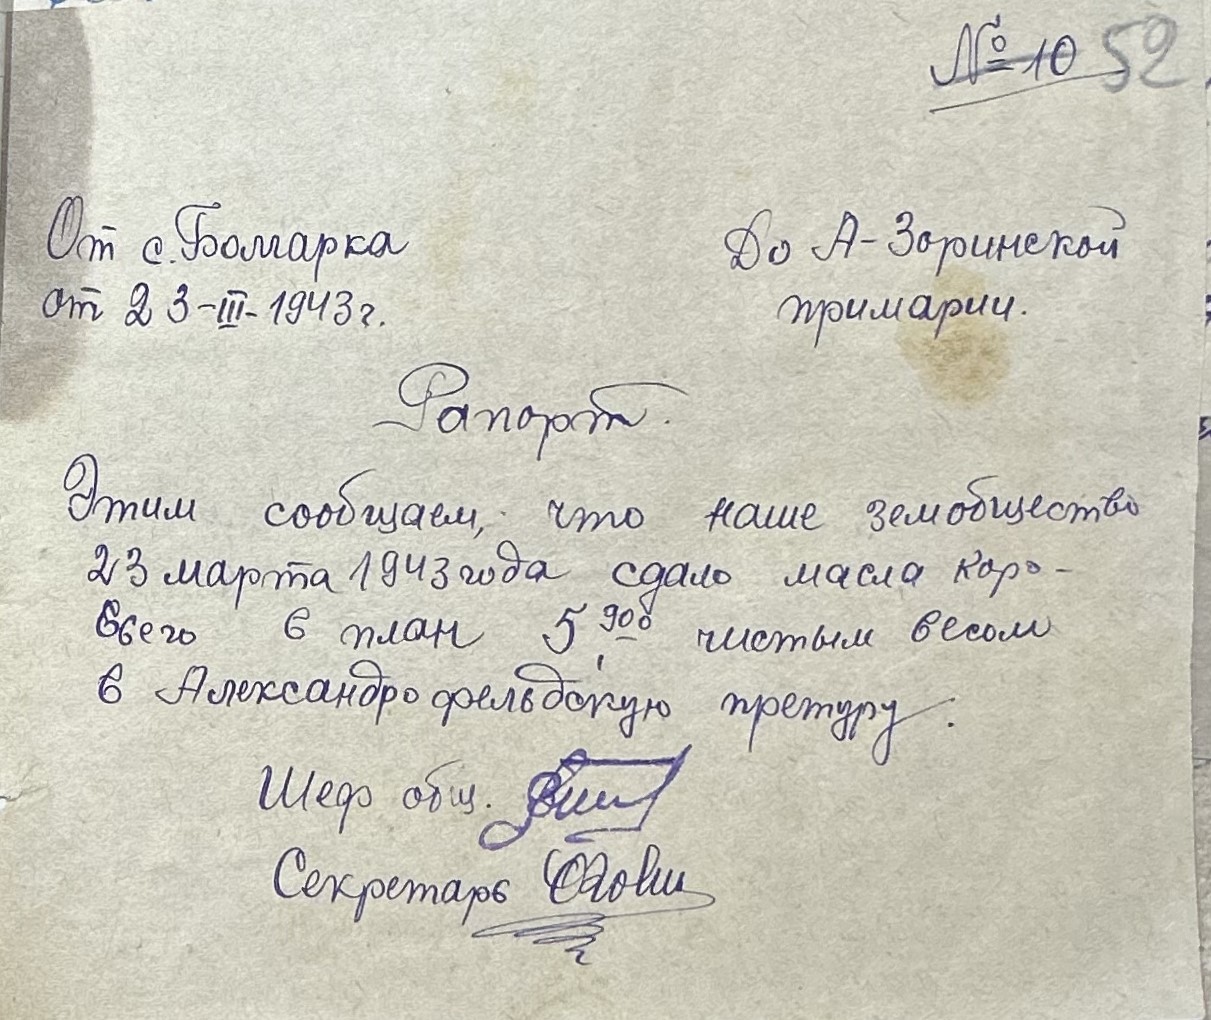 № 10 52
От с. Бомарка
от 23-III-1943 г.
До А-Зоринской
примарии.
Рапорт.
Этим сообщаем, что наше земобщество
23 марта 1943 года сдало масла коро-
вьего в план 5,900 чистым весом
в Александрофельдскую претуру.
Шеф общ.
Секретарь